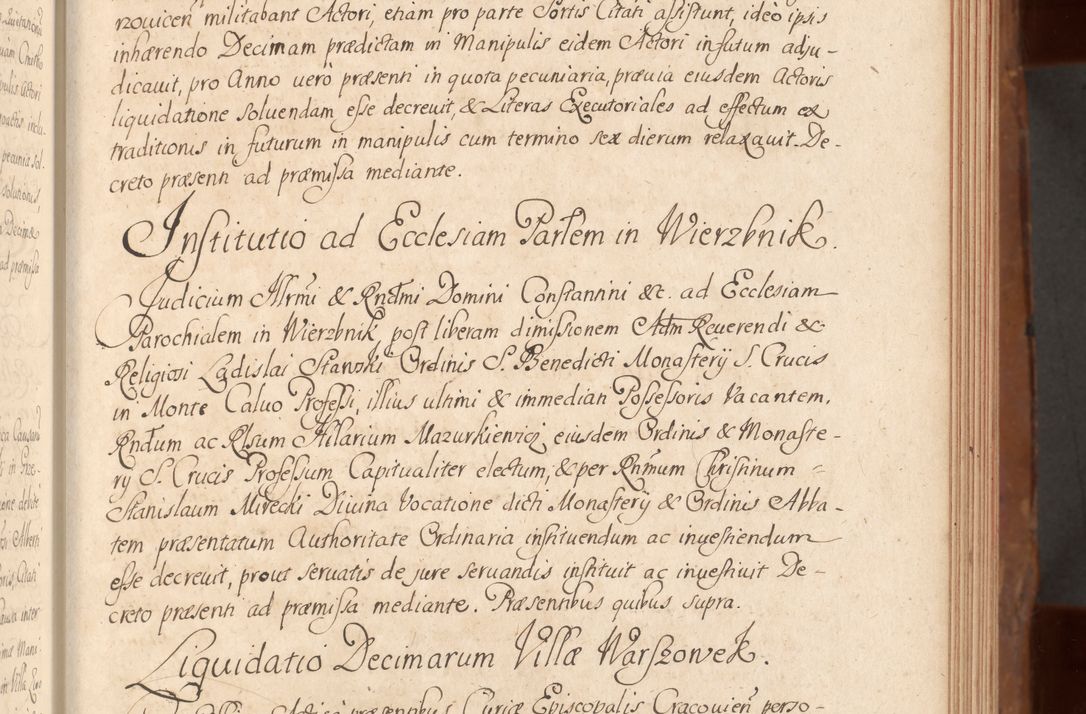 nzovicen̄ militabant Actori, etiam pro parte Sortis Citati assistunt, ideo ipsis
inhærendo Decimam prædictam in Manipulis eidem Actori infutum adju-
dicavit, pro Anno verò præsenti in quota pecuniaria, prævia eiusdem Actoris
liquidatione solvendam esse decrevit, & Literas Executoriales ad effectum ex
traditionis in futurum in manipulis cum termino sex dierum relaxavit. De-
creto præsenti ad præmissa mediante.
Institutio ad Ecclesiam Parłem in Wierzbnik.
Judicium Illrm̃i & Rndm̃i Domini Constantini &c. ad Ecclesiam
Parochialem in Wierzbnik, post liberam dimissionem Adm Reverendi &
Religiosi Ladislai Stawski Ordinis S. Benedicti Monastery S. Crucis
in Monte Calvo Professi, illius ultimi & immediati Possessoris Vacantem,
Rndum ac Rlsum Hilarium Mazurkiewicz, eiusdem Ordinis & Monaste-
ry S. Crucis Professum Capitualiter electum, & per Rnm̃um Christinum
Stanislaum Mirecki Divina Vocatione dicti Monastery & Ordinis Abba-
tem præsentatum Authoritate Ordinaria instituendum ac investiendum
esse decrevit, prout servatis de jure servandis instituit ac investivit De-
creto præsenti ad præmissa mediante. Præsentibus quibus supra.
Liquidatio Decimarum Villæ Warszowek.
præsentibus Curiæ Episcopalis Cracovien̄ perso-